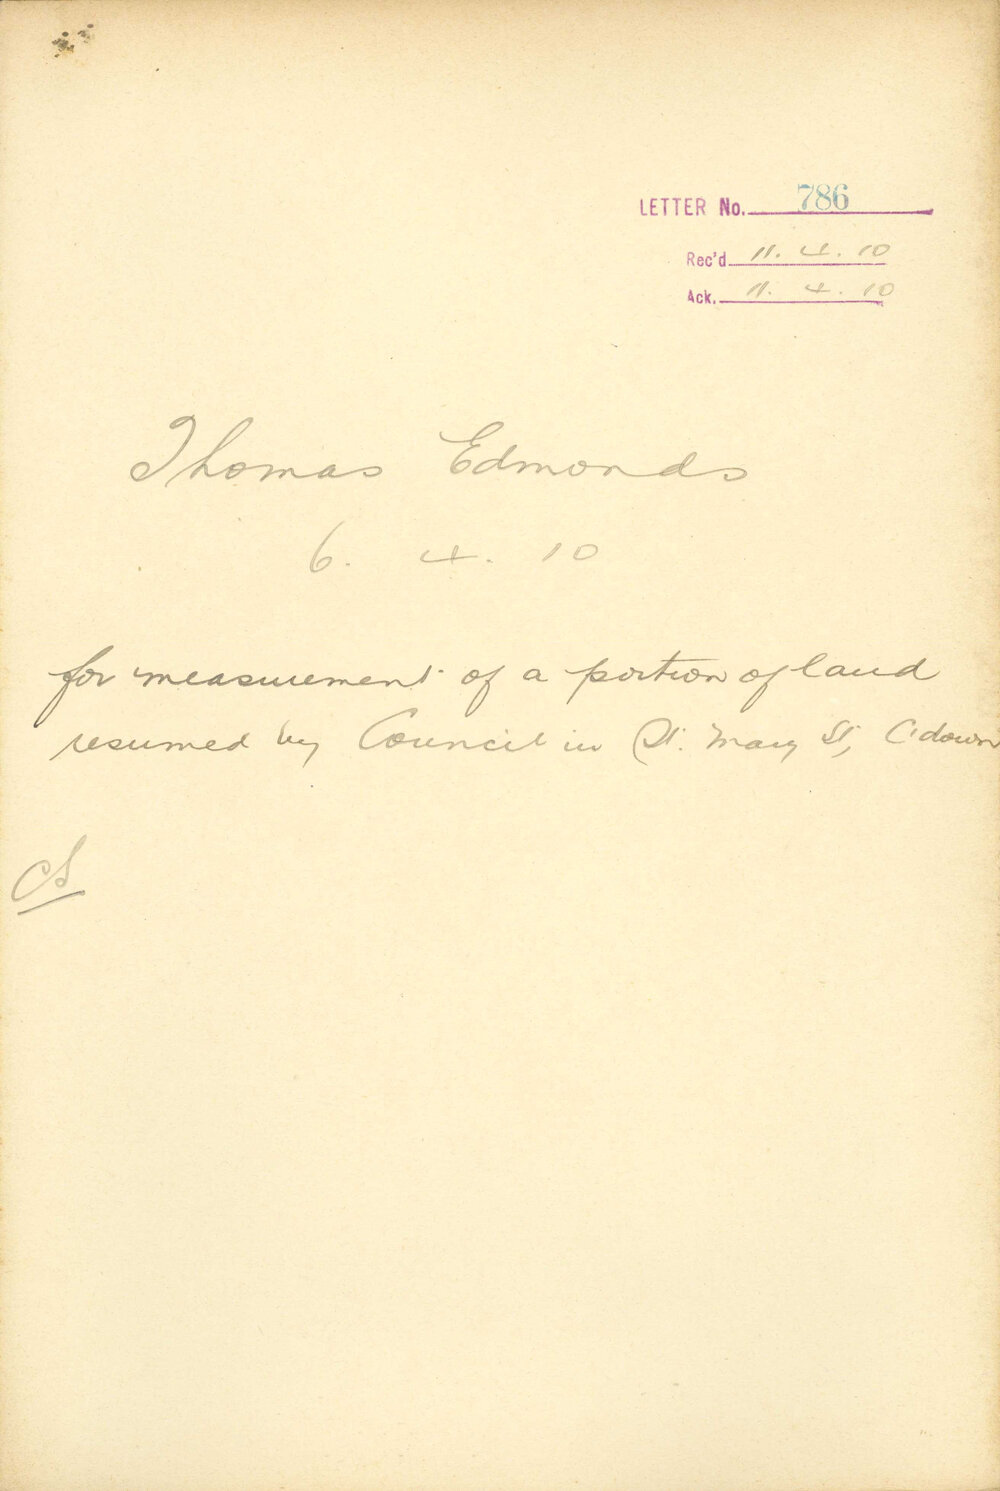 LETTER No. 786
Rec'd 11. 4. 10
Ack. 11. 4. 10
Thomas Edmonds
6. 4. 10
for measurement of a portion of land
resumed by Council in St. Mary St, C'down
CS